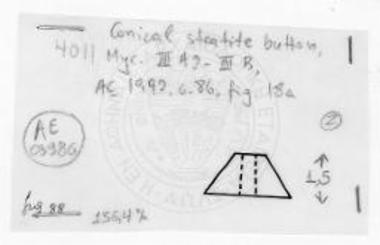 Conical steatite button,
4011 Myc. III A2 - III B,
AE 1992, c. 86, fig 18a
AE
2
1,5
fig 88
156,4%